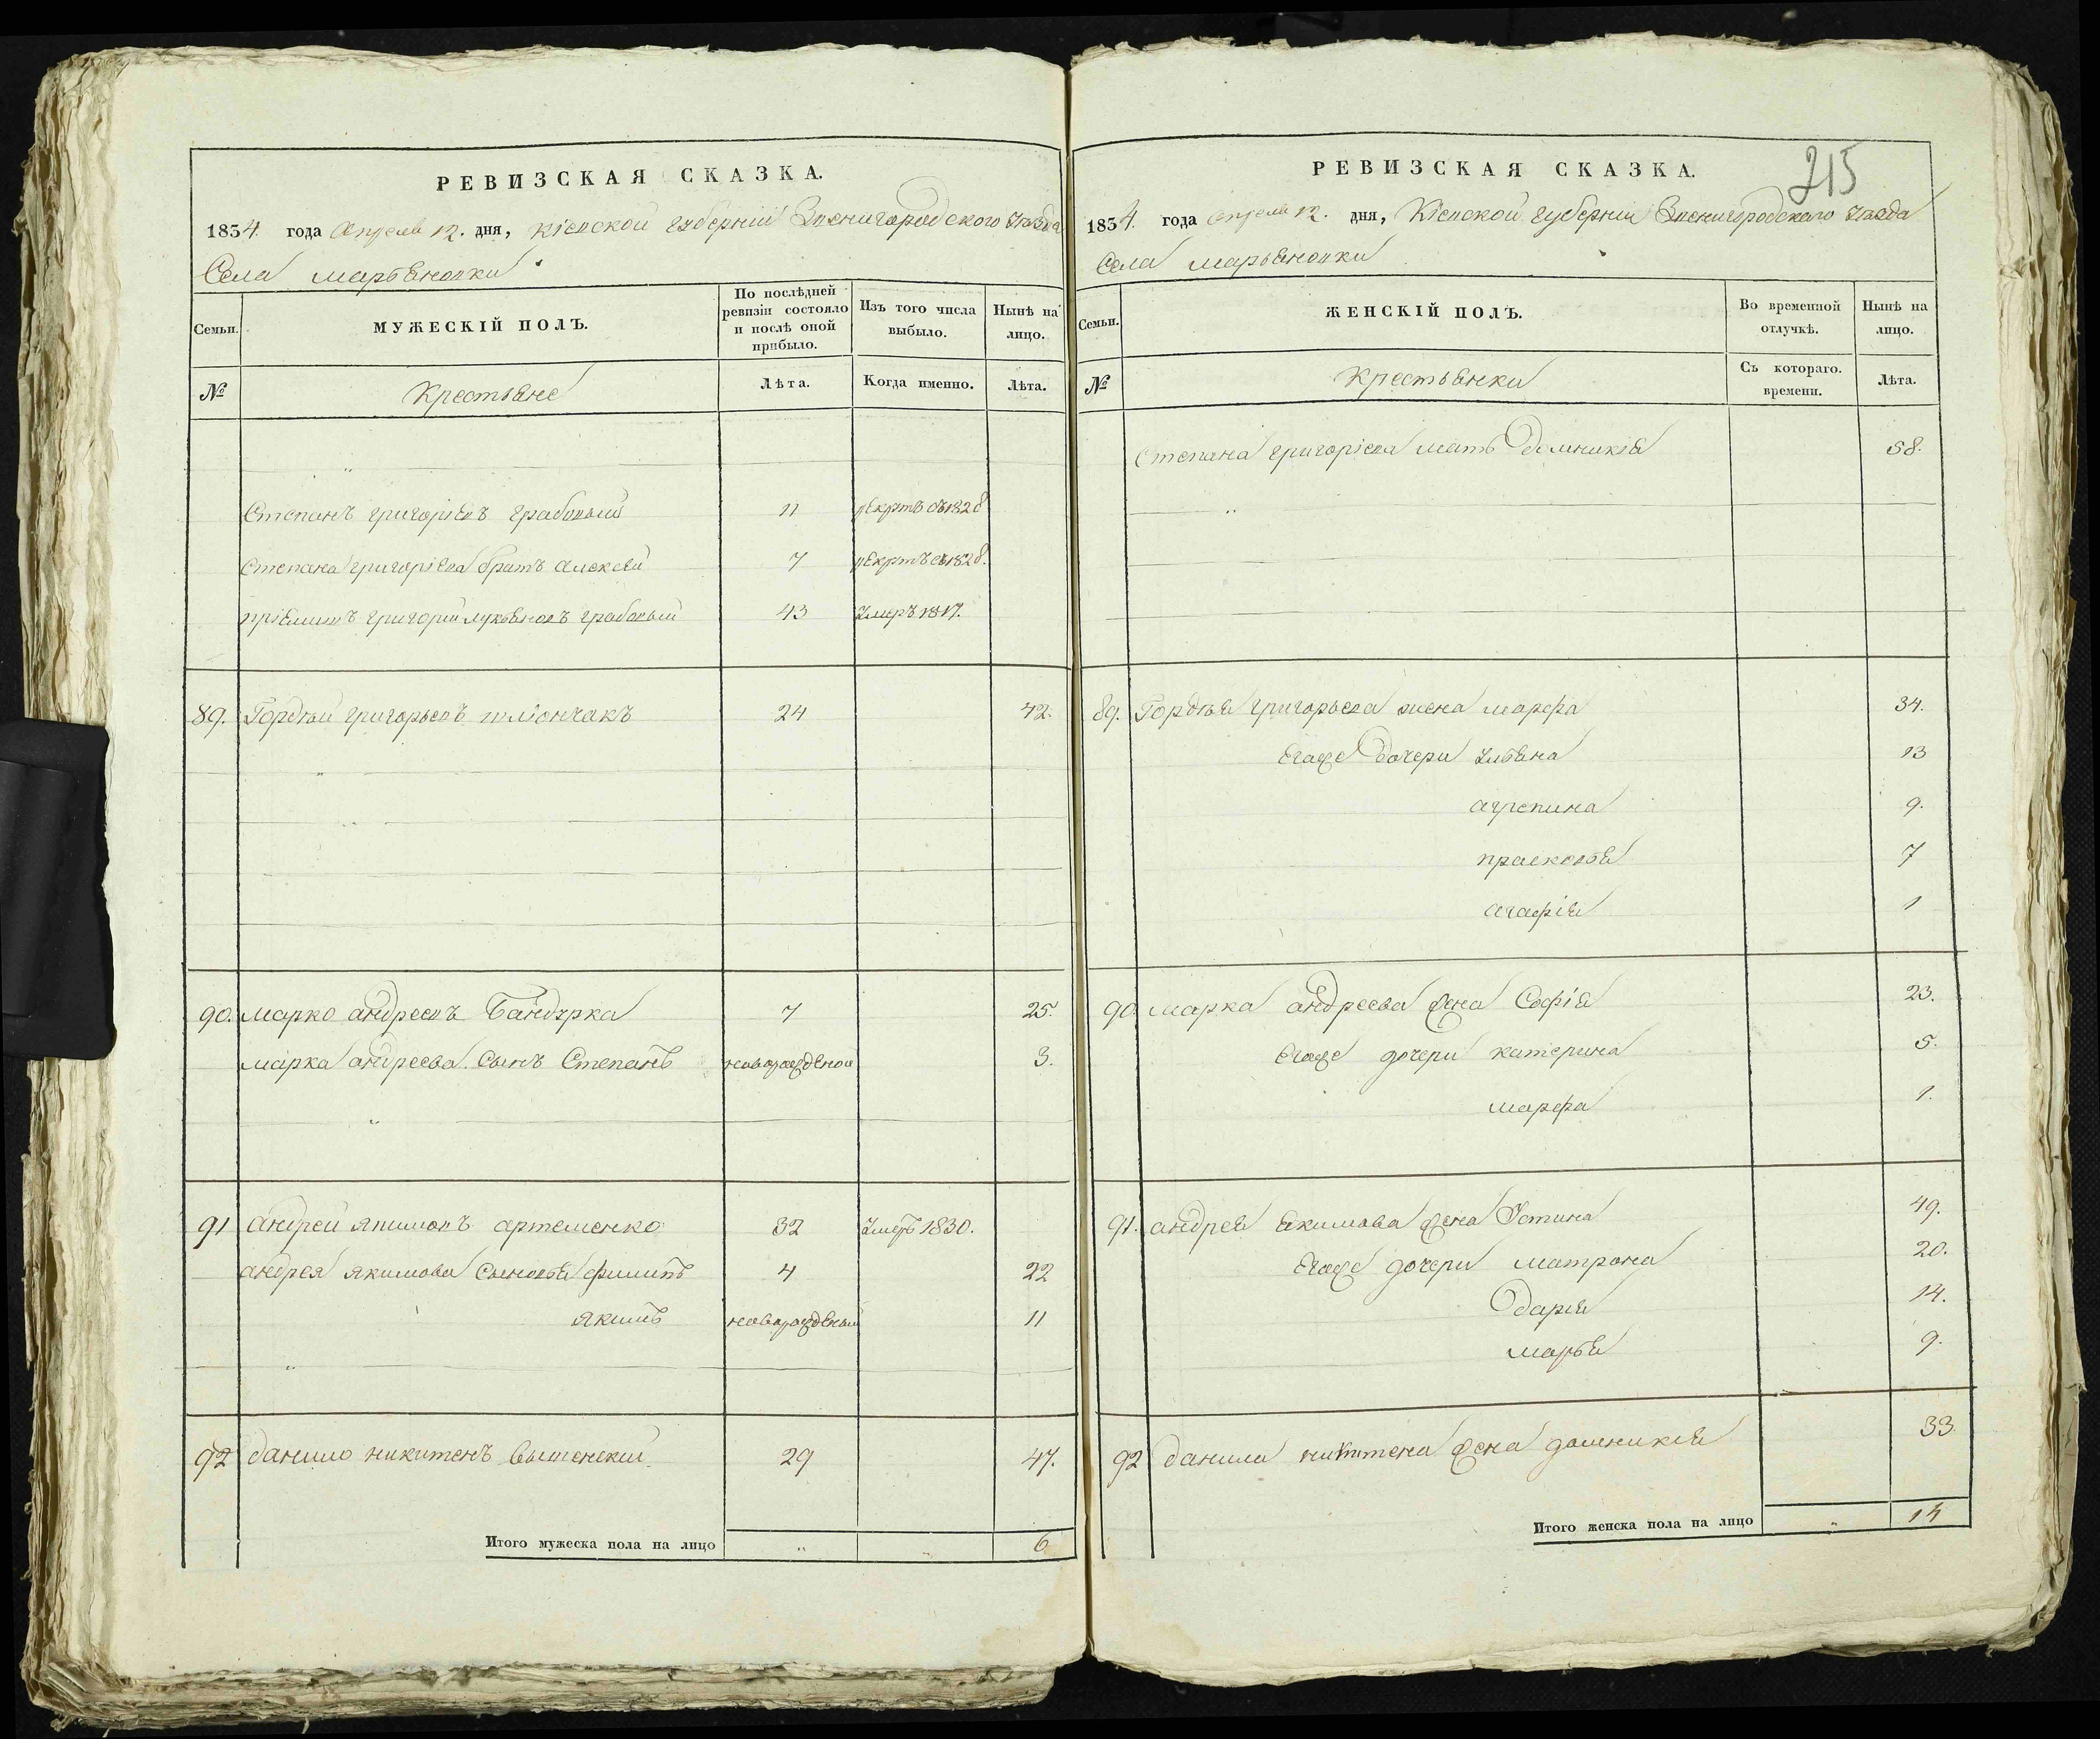 РЕВИЗСКАЯ СКАЗКА.
1834 года Апреля 12. дня, Кіевской губерніи Звенигородского уѣзда
Села Марьяновки
Семьи.
МУЖЕСКІЙ ПОЛЪ.
По послѣдней ревизіи состояло и послѣ оной прибыло.
Изъ того числа выбыло.
Нынѣ на лицо.
№ Крестьяне Лѣта. Когда именно. Лѣта.
Степанъ григоріевъ грабовый 11 рекртъ съ 1828
Степана григоріева братъ алексей 7 рекртъ съ 1828.
пріемишъ григорий лукьяновъ грабовый 43 умеръ 1817.
89. Гордѣй григорьевъ 24 42.
90. марко андреевъ Бандурка 7 25.
марка андреева сынъ Степанъ новорожденой 3.
91 андрей якимовъ артеменко 32 умеръ 1830.
андрея якимова сыновья филипъ 4 22
якимъ новорожденый 11
92 данило никитенъ 29 47.
Итого мужеска пола на лицо " " 6
215
РЕВИЗСКАЯ СКАЗКА.
1834. года апреля 12. дня, Кіевской губерніи Звенигородского уѣзда
Села марьяновки
Семьи.
ЖЕНСКІЙ ПОЛЪ.
Во временной отлучкѣ.
Нынѣ на лицо.
№ Крестьянки Съ котораго времени. Лѣта.
Степана григоріева мать домникія 58.
89. Гордѣя григорьева жена марфа 34.
Егоже дочери ульяна 13
агрепина 9.
прасковья 7
агафія 1
90 марка андреева жена Софія 23.
Егоже дочери катерина 5.
марфа 1.
91. андрея якимова жена Устина 49.
Егоже дочери матрона 20.
дарія 14.
марья 9.
92 данила никитена жена домникія 33
Итого женска пола на лицо " 14